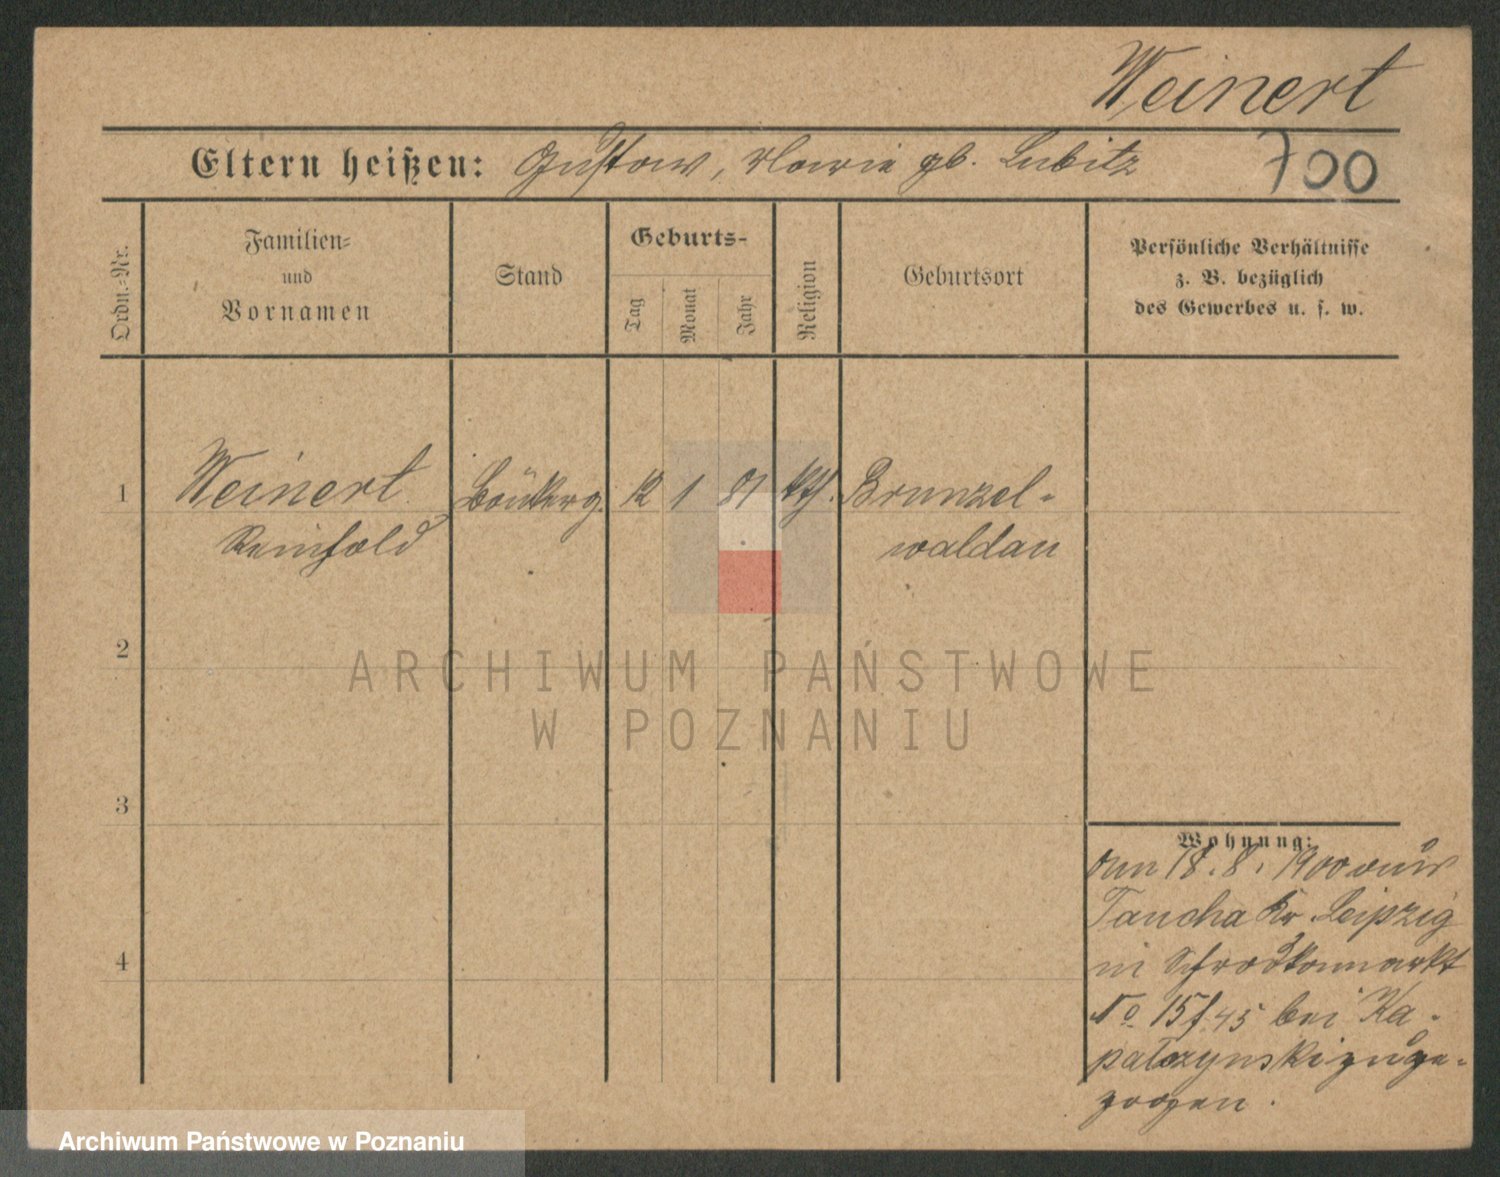 Weinert
Eltern heißen: Gustav, Marie gb. Lubitz 700
Ordn.-Nr.
Familien-
und
Vornamen
Stand
Geburts-
Tag
Monat
Jahr
Religion
Geburtsort
Persönliche Verhältnisse
z. B. bezüglich
des Gewerbes u. s. w.
1 Weinert 12 1 81 kth. Brunzel-
Reinhold waldau
2
3
4
Wohnung:
am 18. 8. 1900 aus
Taucha Kr. Leipzig
in Schrodkamarkt
No 15 bei Ka-
patczynski zuge-
zogen.
ARCHIWUM PAŃSTWOWE
W POZNANIU
Archiwum Państwowe w Poznaniu